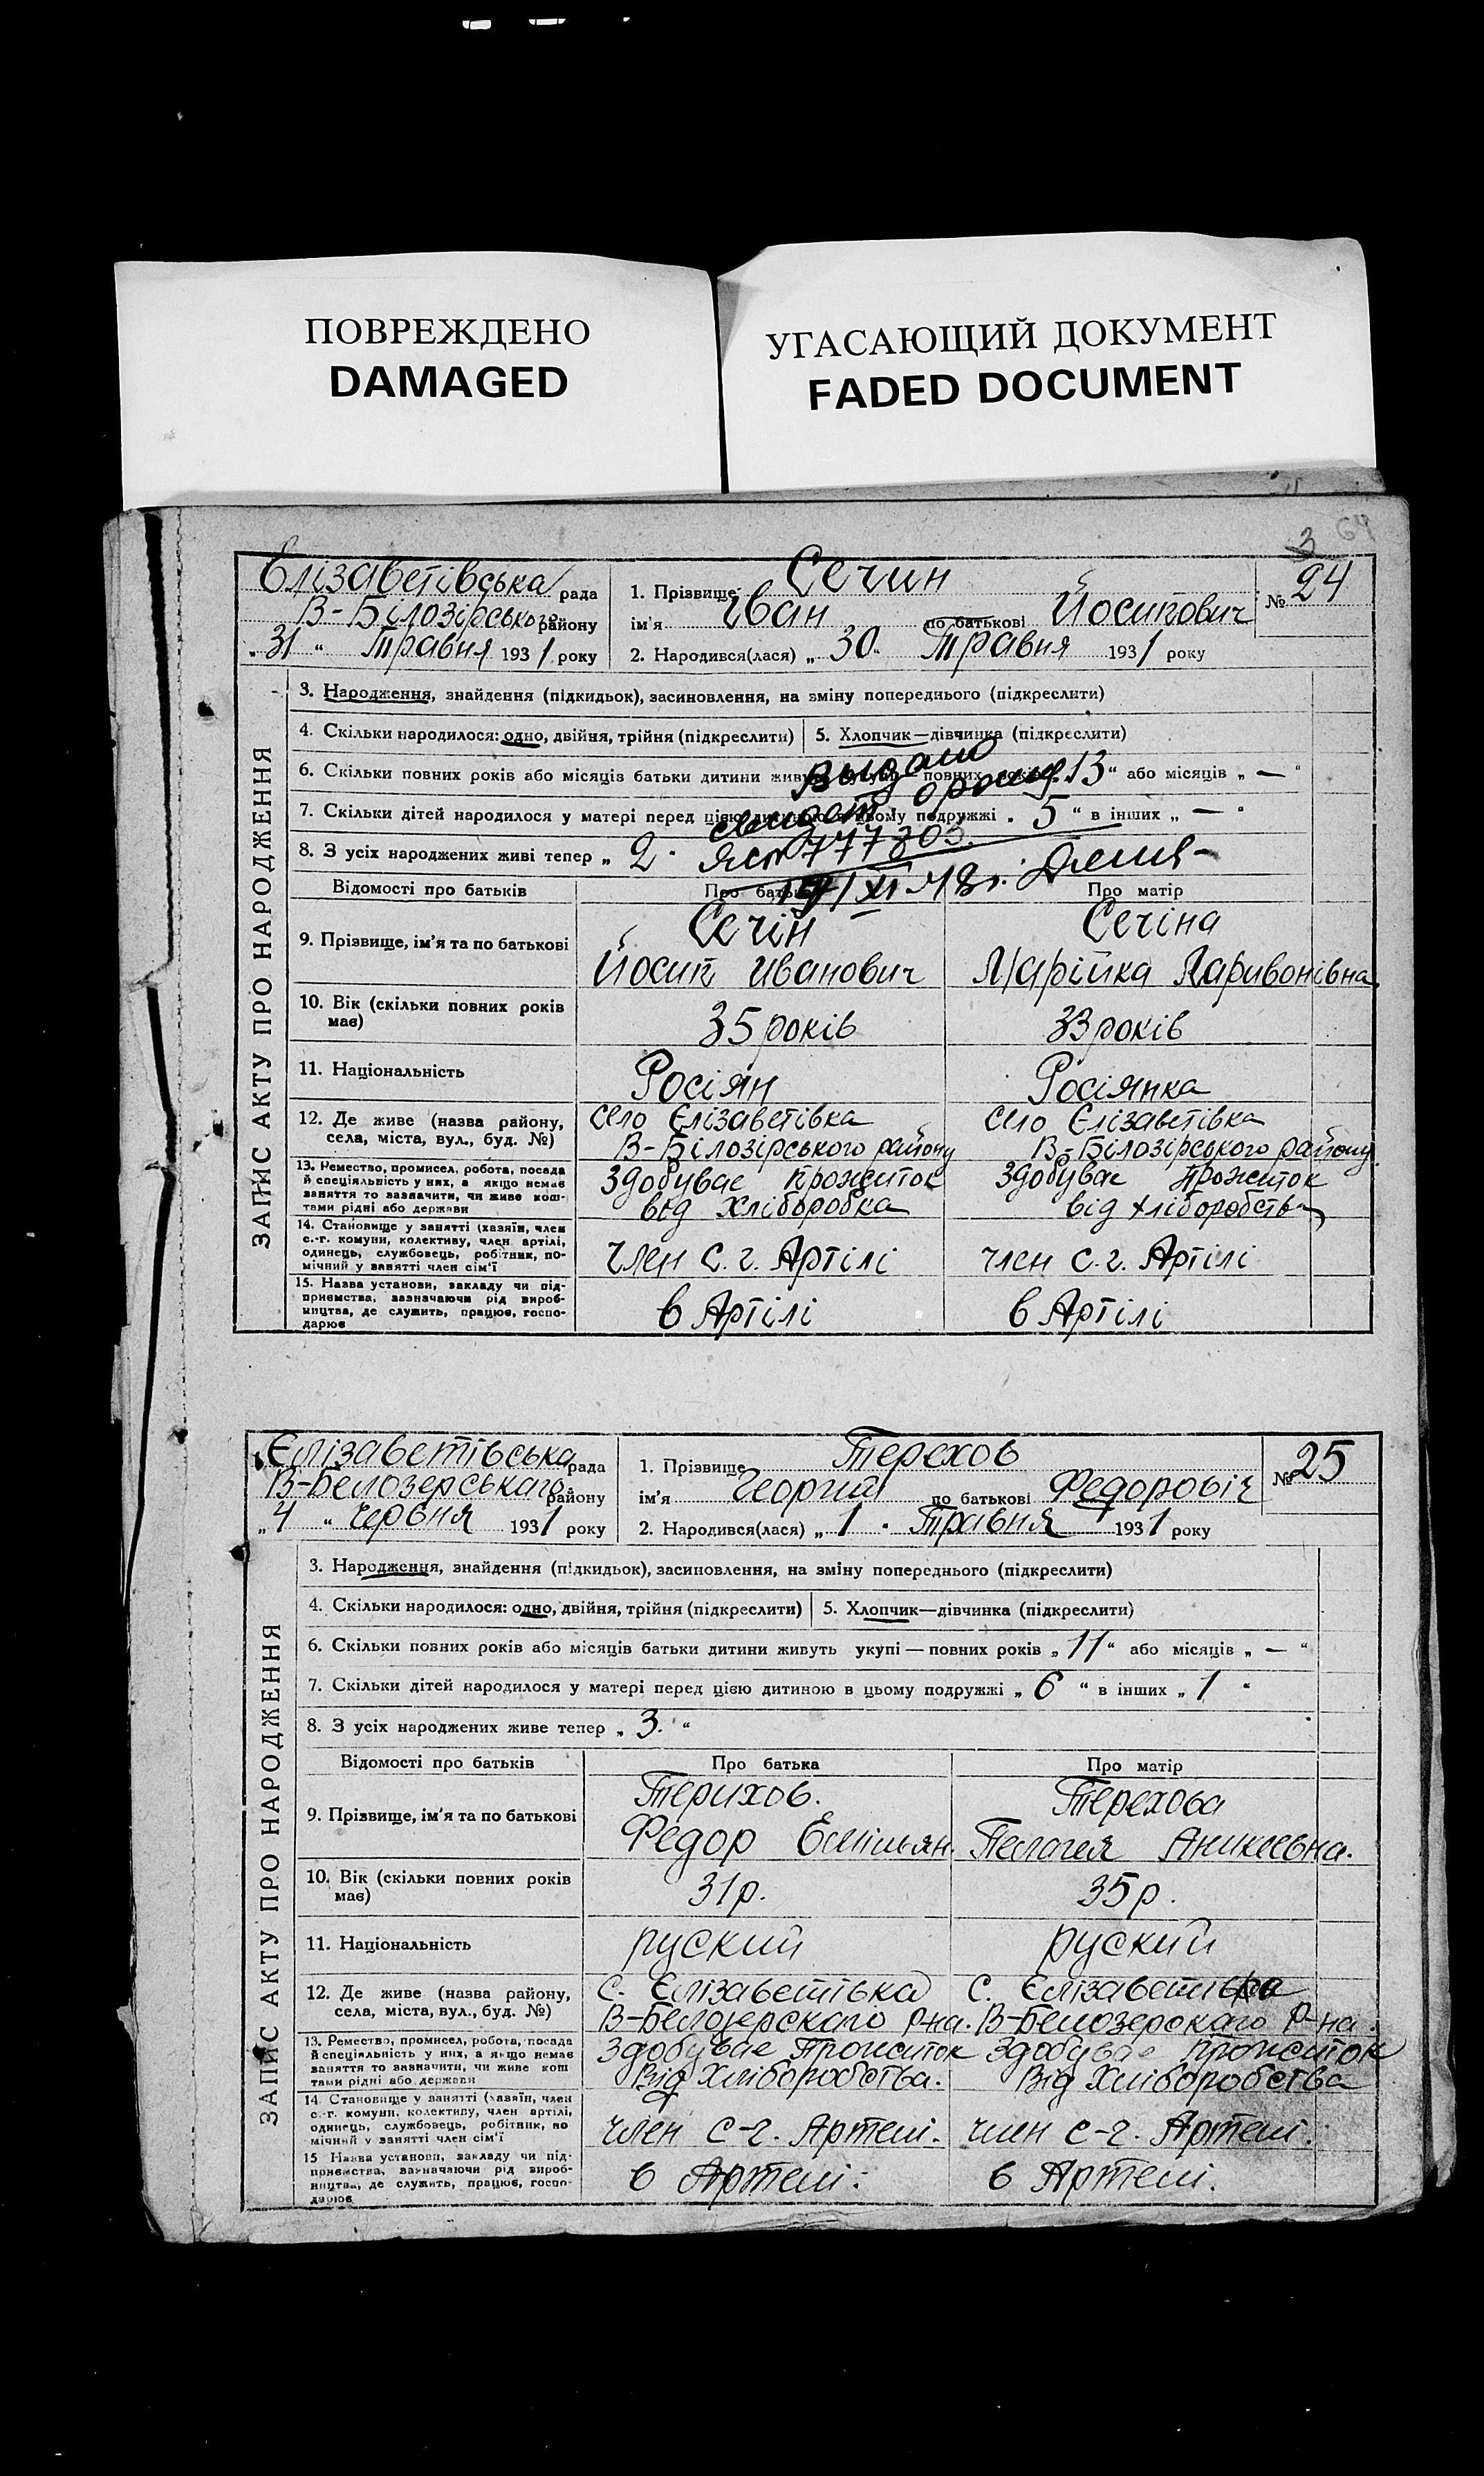 ПОВРЕЖДЕНО
DAMAGED
УГАСАЮЩИЙ ДОКУМЕНТ
FADED DOCUMENT
3 64
ЗАПИС АКТУ ПРО НАРОДЖЕННЯ
Елізаветівська рада
В-Білозірського району
„31“ Травня 1931 року
1. Прізвище Сечин
ім'я Іван по батькові Йосипович
№ 24
2. Народився(лася) „30“ Травня 1931 року
3. Народження, знайдення (підкидьок), засиновлення, на зміну попереднього (підкреслити)
4. Скільки народилося: одно, двійня, трійня (підкреслити)
5. Хлопчик—дівчинка (підкреслити)
6. Скільки повних років або місяців батьки дитини живуть повних 13“ або місяців „—“
7. Скільки дітей народилося у матері перед цією дитиною в цьому подружжі „5“ в інших „—“
8. З усіх народжених живі тепер „2“
Выдано
777803
XI 48г.
Відомості про батьків
Про батька
Про матір
9. Прізвище, ім'я та по батькові
Сечін
Йосип Иванович
Сечіна
Марійка Ларивонівна
10. Вік (скільки повних років має)
35 років
33 років
11. Національність
Росіян
Росіянка
12. Де живе (назва району, села, міста, вул., буд. №)
село Єлізаветівка
В-Білозірського району
село Єлізаветівка
В-Білозірського району
13. Ремество, промисел, робота, посада
й спеціяльність у них, а якщо немає
заняття то зазначити, чи живе кош-
тами рідні або держави
Здобуває прожиток
від Хліборобка
Здобуває Прожиток
від хліборобства
14. Становище у занятті (хазяїн, член
с.-г. комуни, колективу, член артілі,
одинець, службовець, робітник, по-
мічний у занятті член сім'ї
член с. г. Артілі
член с. г. Артілі
15. Назва установи, закладу чи під-
приємства, зазначаючи рід вироб-
ництва, де служить, працює, госпо-
дарює
в Артілі
в Артілі
ЗАПИС АКТУ ПРО НАРОДЖЕННЯ
Єлізаветівська рада
В-Белозерського району
„4“ Червня 1931 року
1. Прізвище Терехов
ім'я Георгий по батькові Федоровіч
№ 25
2. Народився(лася) „1“ Травня 1931 року
3. Народження, знайдення (підкидьок), засиновлення, на зміну попереднього (підкреслити)
4. Скільки народилося: одно, двійня, трійня (підкреслити)
5. Хлопчик—дівчинка (підкреслити)
6. Скільки повних років або місяців батьки дитини живуть укупі — повних років „11“ або місяців „—“
7. Скільки дітей народилося у матері перед цією дитиною в цьому подружжі „6“ в інших „1“
8. З усіх народжених живе тепер „3.“
Відомості про батьків
Про батька
Про матір
9. Прізвище, ім'я та по батькові
Терихов.
Федор Емільян.
Терехова
Пелогея Аникеевна.
10. Вік (скільки повних років має)
31р.
35р.
11. Національність
руский
руский
12. Де живе (назва району, села, міста, вул., буд. №)
с. Єлізаветівка
В-Белозерскаго р-на.
с. Єлізаветівка
В-Белозерскаго Р-на.
13. Ремество, промисел, робота, посада
й спеціяльність у них, а якщо немає
заняття то зазначити, чи живе кош
тами рідні або держави
Здобувае Прожиток
Від Хліборобства.
Здобувае прожиток
Від Хліборобства
14. Становище у занятті (хазяїн, член
с.-г. комуни, колективу, член артілі,
одинець, службовець, робітник, по
мічний у занятті член сім'ї
член с-г. Артелі.
член с-г. Артелі.
15 Назва установи, закладу чи під-
приємства, зазначаючи рід вироб-
ництва, де служить, працює, госпо-
дарює
в Артелі.
в Артелі.